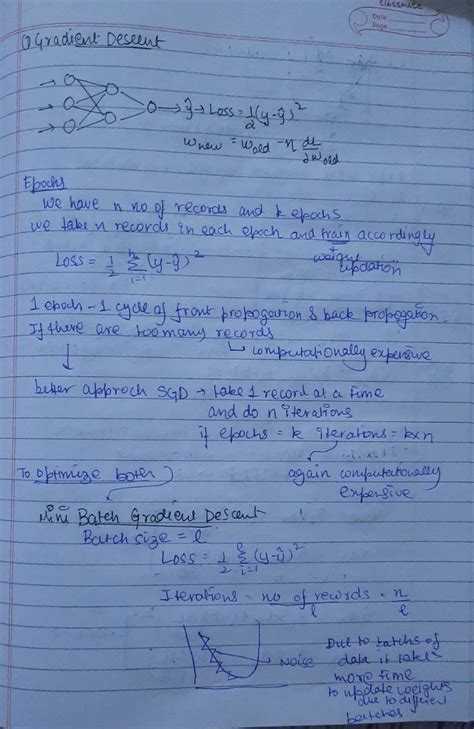 classmate
Date
Page
Gradient Descent
→ ŷ → Loss = 1/2 (y-ŷ)²
w_new = w_old - η dL/∂w_old
Epochs
We have n no of records and k epochs
we take n records in each epoch and train accordingly
Loss = 1/2 Σ_{i=1}^{n} (y-ŷ)²
weight
updation
1 epoch - 1 cycle of front propogation & back propogation.
If there are too many records
↳ computationally expensive
better approch SGD → take 1 record at a time
and do n iterations
if epochs = k iterations = k×n
To optimize
again computationally
expensive
Mini Batch Gradient Descent
Batch size = l
Loss = 1/2 Σ_{i=1}^{l} (y-ŷ)²
Iterations = no of records / l = n/l
Noise
Due to batchs of
data it take
more time
to update weights
due to different
batches